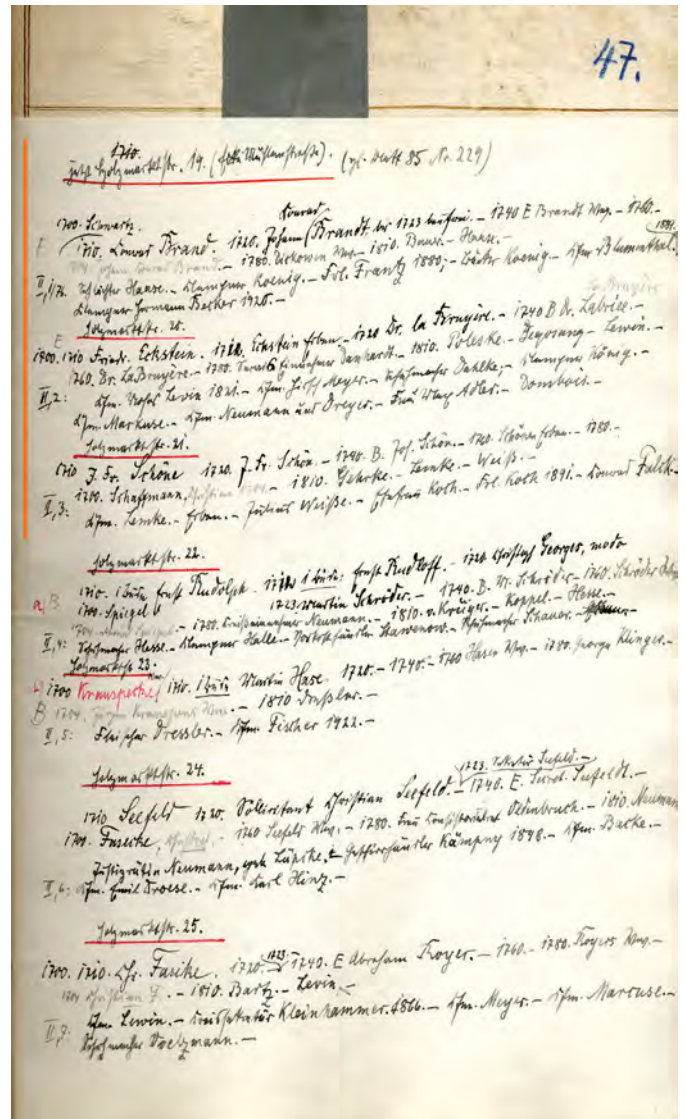 47.
1710.
jetzt Holzmarktstr. 19. (Ecke Mühlenstraße). (vgl. Blatt 85 Nr. 229)
Konrad
1700. Schwartz.
1710. Konrad Brand. 1720. Johann (Brandt bis 1723 — 1740 E Brandt Wwe. — 1760. —
1704. Johann Conrad Brand. — 1780. Wwe. — 1810. Baur. — Haase. — 1891.
II, 1/76. Schlächter Haase. — Klempner Koenig. — Frl. Frantz 1880; — Bäcker Koenig. — Kfm. Blumenthal.
Klempner Hermann Becker 1920. — La Bruyère
Holzmarktstr. 20.
E
1700. 1710 Friedr. Eckstein. 1712. Eckstein Erben. — 1720 Dr. la Bruyère. — 1740 B Dr. Labriee. —
1760. Dr. LaBruyère. — 1780. Danhardt. — 1810. Poleske. — Lewin. —
II, 2: Kfm. Moses Lewin 1821. — Kfm. Hirsch Meyer. — Schuhmacher Dahlke; — Klempner König. —
Kfm. Markuse. — Kfm. Neumann und Dreyer. — Frau Wwe Adler. — Dombois. —
Holzmarktstr. 21.
1710 J. Fr. Schöne 1720. J. Fr. Schön. — 1740. B. Joh. Schön. — 1760. Schönes Erben. — 1780. —
1700. Schaffmann, Christian 1704. — 1810. Gehrke. — Lemke. — Weiß. —
II, 3: Kfm. Lemke. — Erben. — Julius Weiße. — Koth. — Frl. Koth 1891. — Konrad Falck. —
Holzmarktstr. 22.
1710. 1 Bude Ernst Rudolph. 1712 1 Bude: Ernst Rudloff. — 1720. Christoph Georges, modo
a) B 1700. Spiegel 1723. Martin Schröder. — 1740. B. M. Schröder — 1760. Schröder
1704. Spiegel. — 1780. Kreißeinnehmer Neumann. — 1810. v. Krüger. — Koppel. — Hesse. —
II, 4: Schuhmacher Hesse. — Klempner Halle. — Stawenow. — Schuhmacher Schauer. —
Holzmarktstr. 23.
b) 1700 Krauspecke, 1710. 1 Bude Martin Hase. 1720. — 1740. — 1760 Hasen Wwe. — 1780. George Klinger. —
B 1704. Jürgen Wwe. — 1810 Dreßler. —
II, 5: Fleischer Dressler. — Kfm. Fischer 1922. —
Holzmarktstr. 24.
1723. Sekretär Seefeld. —
1710 Seefeld 1720. Sollicitant Christian Seefeld. — 1740. E. Secret. Seefeldt. —
1700. Fasecke, Christian. — 1760 Seefeld Wwe. — 1780. Frau Oldenbruch. — 1810. Neumann
Justizrätin Neumann, geb. Lüpcke. — Geschirrhändler Kämpny 1898. — Kfm. Backe. —
II, 6: Kfm. Emil Droese. — Kfm. Karl Hinz. —
Holzmarktstr. 25.
1700. 1710. Chr. Fasike. 1720. 1723. 1740. E Abraham Royer. — 1760. — 1780. Royers Wwe. —
1704 Christian F. — 1810. Bartz. — Levin. —
II, 7: Kfm. Lewin. — Kreissekretär Kleinhammer. 1866. — Kfm. Meyer. — Kfm. Marcuse. —
Schuhmacher Voelzmann. —